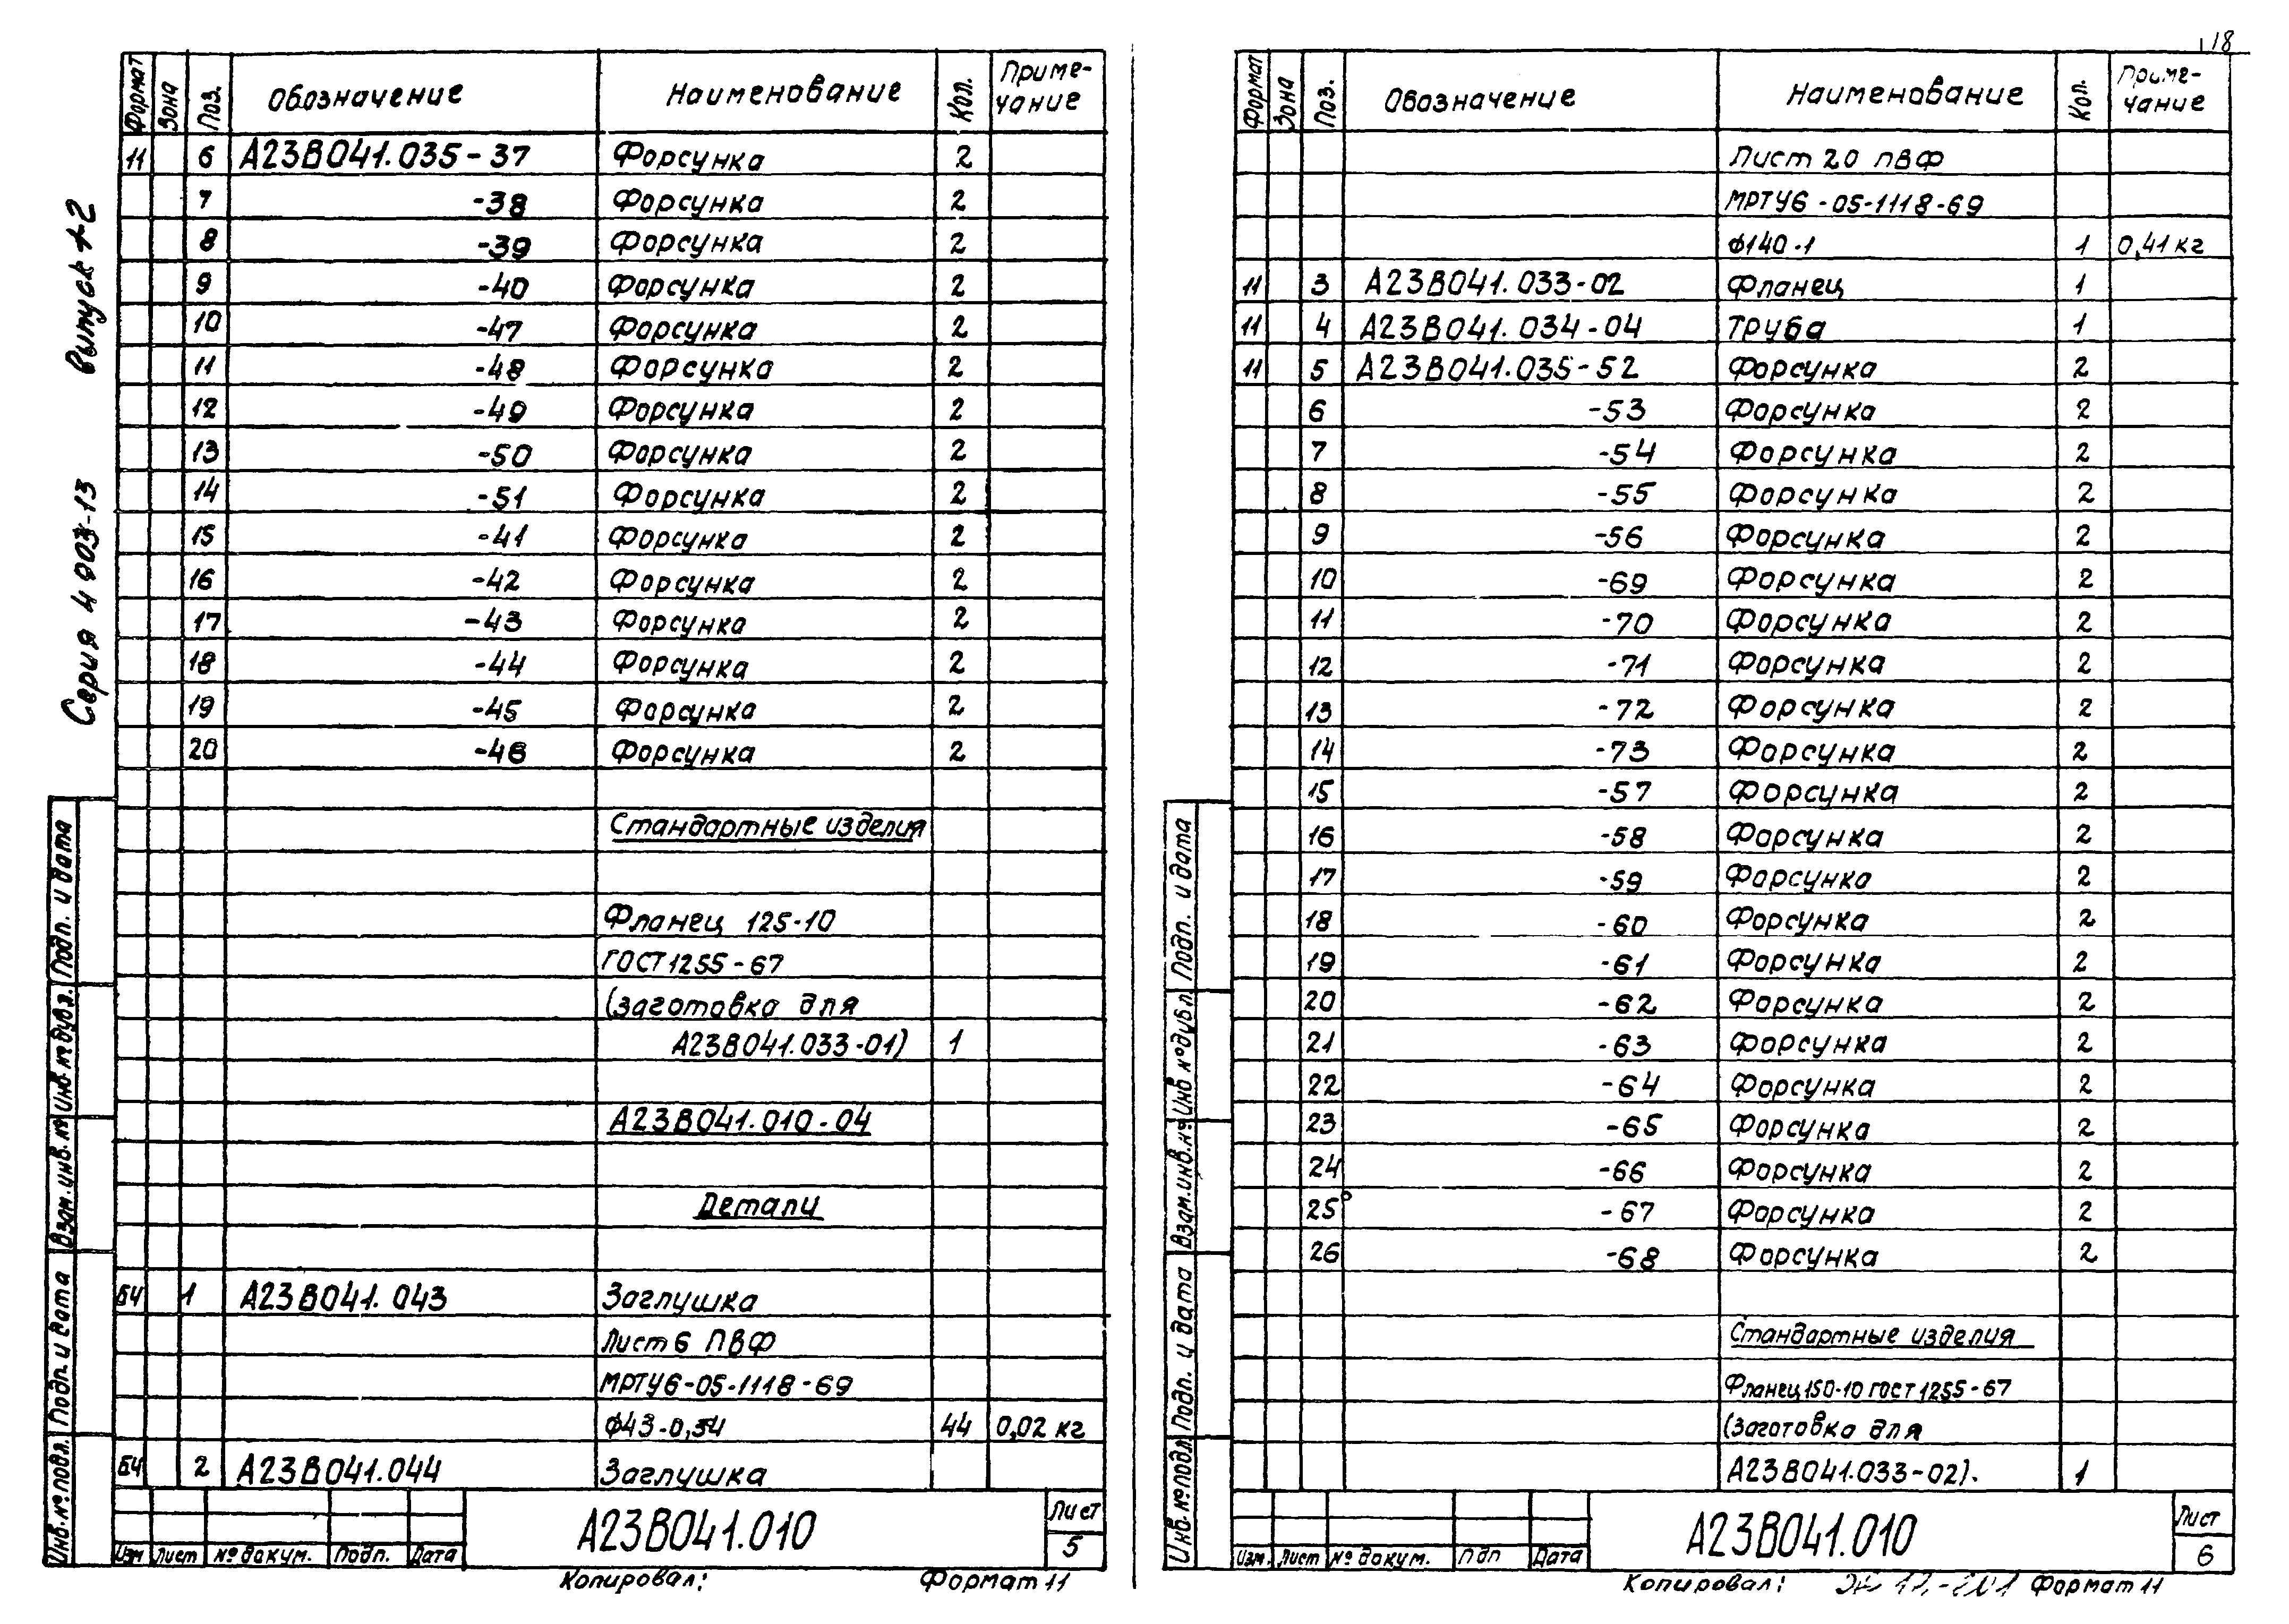 18
Серия 4 903-13 Выпуск 1-2
Формат Зона Поз. Обозначение Наименование Кол. Приме-
чание
11 6 А23В041.035-37 Форсунка 2
7 -38 Форсунка 2
8 -39 Форсунка 2
9 -40 Форсунка 2
10 -47 Форсунка 2
11 -48 Форсунка 2
12 -49 Форсунка 2
13 -50 Форсунка 2
14 -51 Форсунка 2
15 -41 Форсунка 2
16 -42 Форсунка 2
17 -43 Форсунка 2
18 -44 Форсунка 2
19 -45 Форсунка 2
20 -46 Форсунка 2
Стандартные изделия
Фланец 125-10
ГОСТ 1255-67
(заготовка для
А23В041.033-01) 1
А23В041.010-04
Детали
БЧ 1 А23В041.043 Заглушка
Лист 6 ПВФ
МРТУ6-05-1118-69
ф43-0,34 44 0,02 кг
БЧ 2 А23В041.044 Заглушка
Инв.№подл. Подп. и дата Взам.инв.№ Инв.№дубл. Подп. и дата
А23В041.010
Лист
5
Изм Лист №докум. Подп. Дата
Копировал: Формат 11
Формат Зона Поз. Обозначение Наименование Кол. Приме-
чание
Лист 20 ПВФ
МРТУ6-05-1118-69
ф140-1 1 0,41 кг
11 3 А23В041.033-02 Фланец 1
11 4 А23В041.034-04 Труба 1
11 5 А23В041.035-52 Форсунка 2
6 -53 Форсунка 2
7 -54 Форсунка 2
8 -55 Форсунка 2
9 -56 Форсунка 2
10 -69 Форсунка 2
11 -70 Форсунка 2
12 -71 Форсунка 2
13 -72 Форсунка 2
14 -73 Форсунка 2
15 -57 Форсунка 2
16 -58 Форсунка 2
17 -59 Форсунка 2
18 -60 Форсунка 2
19 -61 Форсунка 2
20 -62 Форсунка 2
21 -63 Форсунка 2
22 -64 Форсунка 2
23 -65 Форсунка 2
24 -66 Форсунка 2
25 -67 Форсунка 2
26 -68 Форсунка 2
Стандартные изделия
Фланец 150-10 ГОСТ 1255-67
(Заготовка для
А23В041.033-02). 1
Инв.№подл Подп. и дата Взам.инв.№ Инв №дубл Подп. и дата
А23В041.010
Лист
6
Изм. Лист №докум. Пдп Дата
Копировал: Формат 11